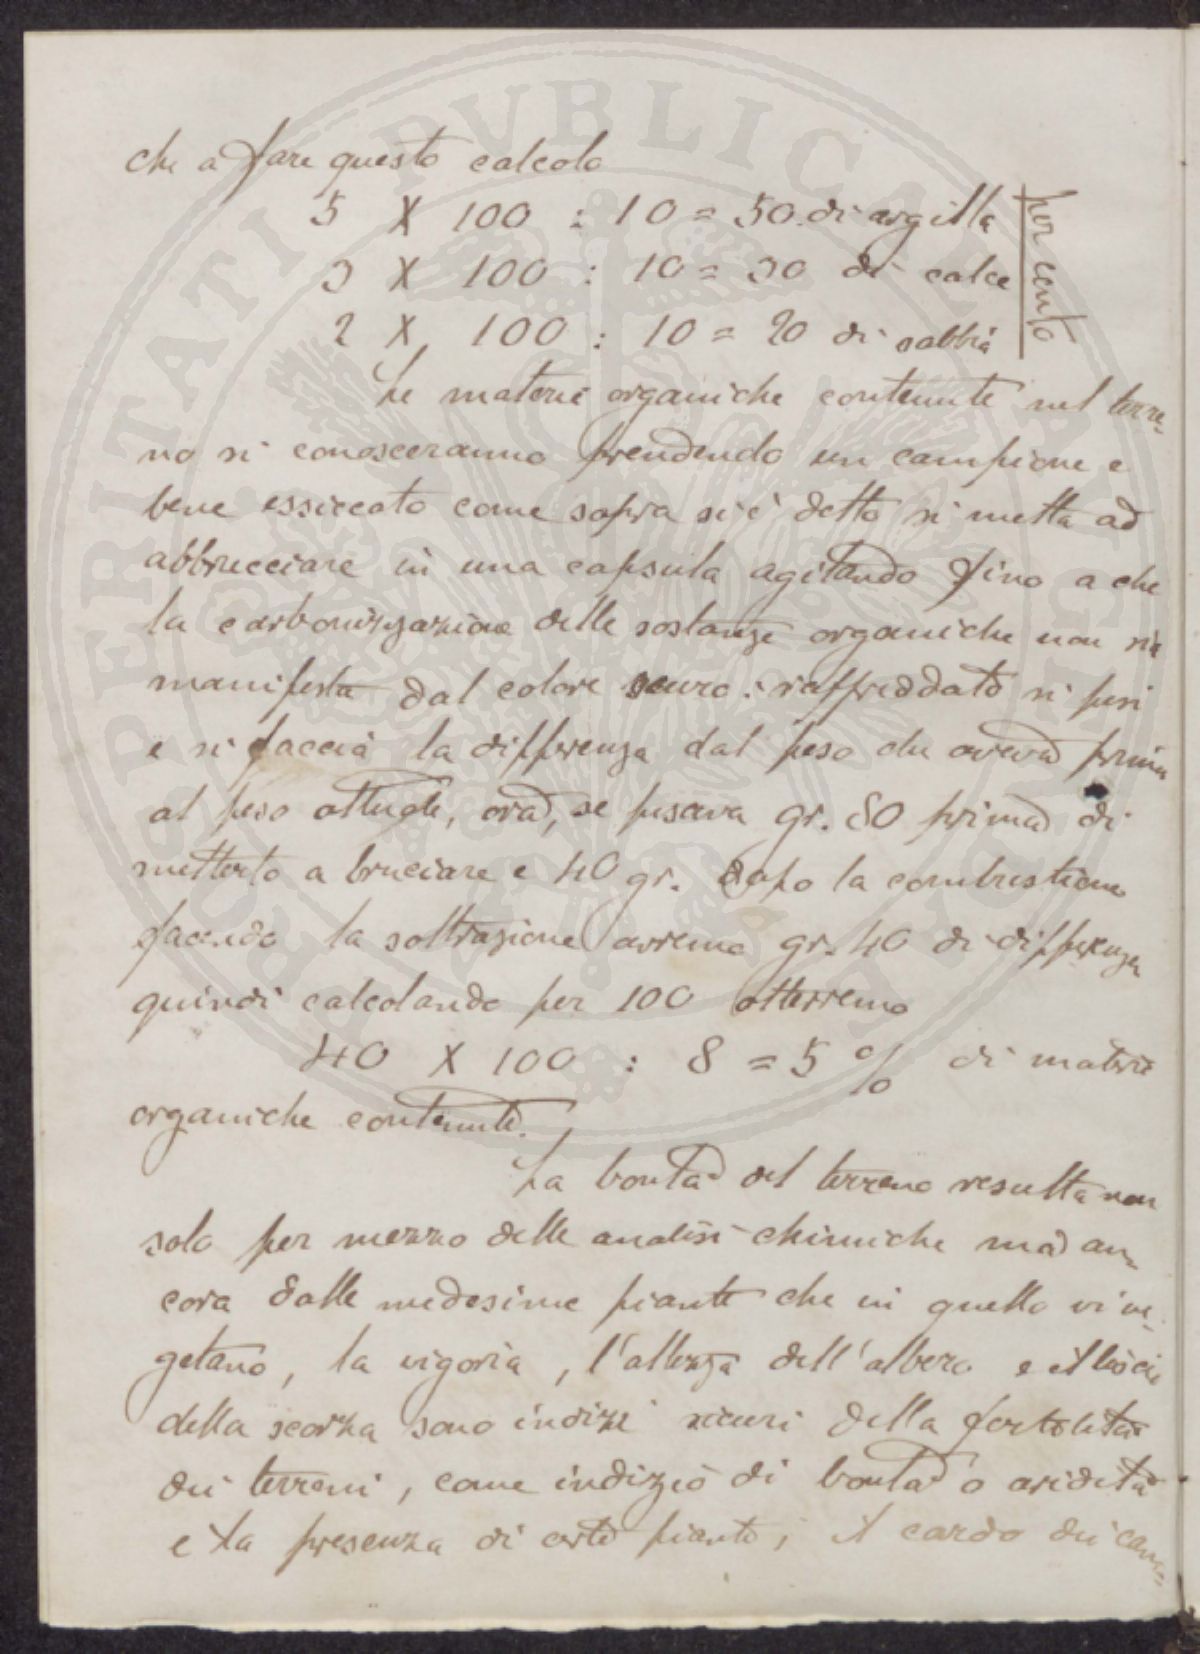 che a fare questo calcolo
5 X 100 : 10 = 50 di argilla
3 X 100 : 10 = 30 di calce
2 X 100 : 10 = 20 di sabbia
per cento
Le materie organiche contenute nel terre-
no si conosceranno prendendo un campione e
bene essiccato come sopra si è detto si metta ad
abbrucciare in una capsula agitando fino a che
la carbonizzazione delle sostanze organiche non sia
manifesta dal colore scuro: raffreddato si pesi
e si faccia la differenza dal peso che aveva prima
al peso attuale, ora, se pesava gr. 80 prima di
metterlo a bruciare e 40 gr. dopo la combustione
facendo la sottrazione avremo gr. 40 di differenza
quindi calcolando per 100 otterremo
40 X 100 : 8 = 5 % di materie
organiche contenute.
La bontà del terreno resulta non
solo per mezzo delle analisi chimiche ma an-
cora dalle medesime piante che in quello vi ve-
getano, la vigoria, l'altezza dell'albero e il liscio
della scorza sono indizi sicuri della fertilità
dei terreni, come indizio di bontà o aridità
e la presenza di certe piante; il cardo dei
PROSPERITATI PUBLICAE AUGENDAE